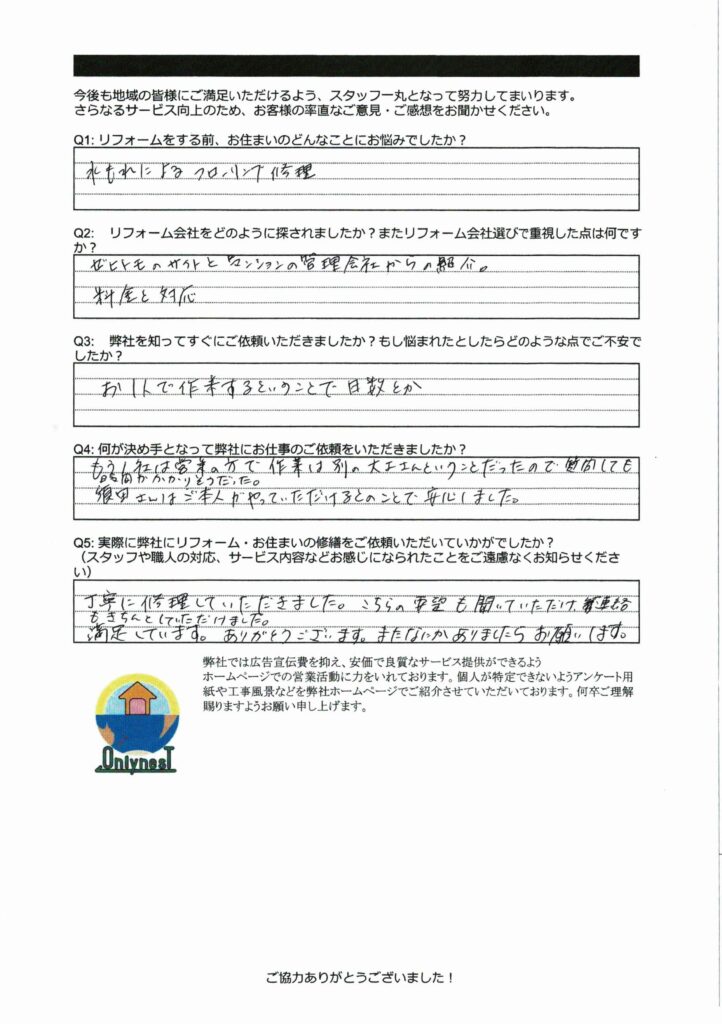 今後も地域の皆様にご満足いただけるよう、スタッフ一丸となって努力してまいります。
さらなるサービス向上のため、お客様の率直なご意見・ご感想をお聞かせください。
Q1: リフォームをする前、お住まいのどんなことにお悩みでしたか？
水もれによる フローリング 修理
Q2:　リフォーム会社をどのように探されましたか？またリフォーム会社選びで重視した点は何です
か？
ゼヒトモのサイトと マンションの管理会社からの紹介。
料金と対応
Q3:　弊社を知ってすぐにご依頼いただきましたか？もし悩まれたとしたらどのような点でご不安で
したか？
お1人で作業するということで日数とか
Q4: 何が決め手となって弊社にお仕事のご依頼をいただきましたか？
もう1社は営業の方で作業は別の大工さんということだったので 質問しても
時間がかかりそうだった。
須田さんはご本人がやっていただけるとのことで安心しました。
Q5: 実際に弊社にリフォーム・お住まいの修繕をご依頼いただいていかがでしたか？
（スタッフや職人の対応、サービス内容などお感じになられたことをご遠慮なくお知らせくださ
い）
丁寧に修理していただきました。こちらの要望も聞いていただけ、連絡
もきちんとしていただけました。
満足しています。ありがとうございます。またなにかありましたらお願いします。
弊社では広告宣伝費を抑え、安価で良質なサービス提供ができるよう
ホームページでの営業活動に力をいれております。個人が特定できないようアンケート用
紙や工事風景などを弊社ホームページでご紹介させていただいております。何卒ご理解
賜りますようお願い申し上げます。
OnlynesT
ご協力ありがとうございました！